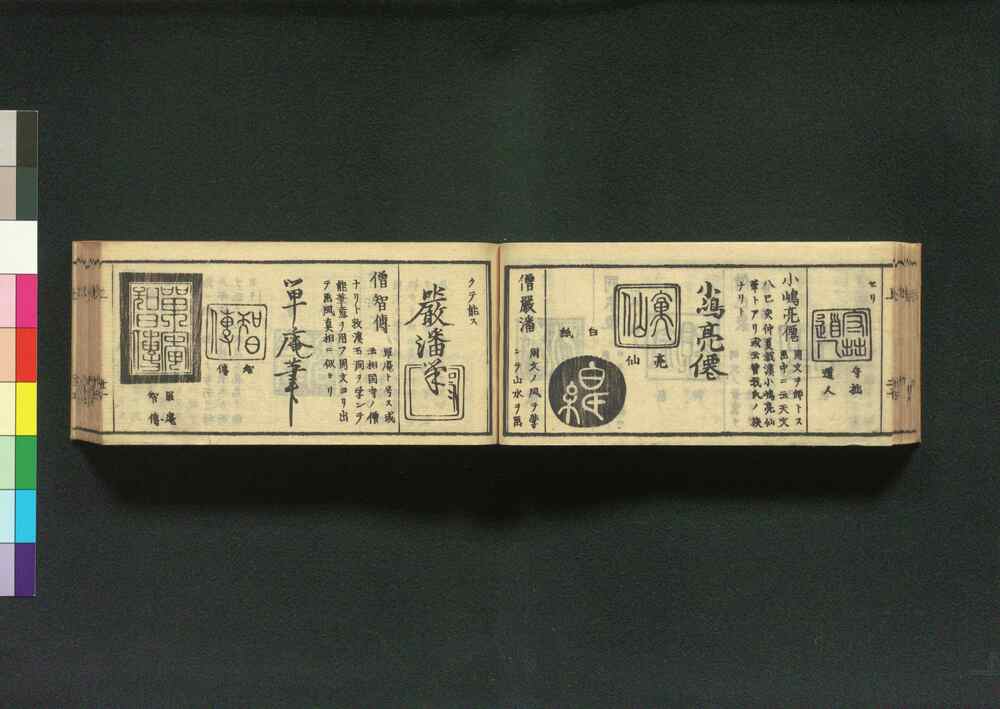 セリ
守拙
道人
守拙
道人
小嶋亮僊
周文ヲ師トス
畫中ニ云天文
八巳亥仲夏
小嶋亮仙
筆トアリ或云曽我氏ノ族
ナリト
小嶋亮僊
亮仙
亮
仙
白
紙
僧嚴潘
周文ノ風ヲ學
ンテ山水ヲ畫
クテ能ス
嚴潘筆
僧智傳
單庵ト号ス或
云相国寺ノ僧
ナリト牧溪玉澗ヲ学ンテ
能筆墨ヲ用ア周文ヨリ出
テ畫風真相ニ似タリ
單庵筆
智傳
智
傳
單庵
智傳
單庵
智傳